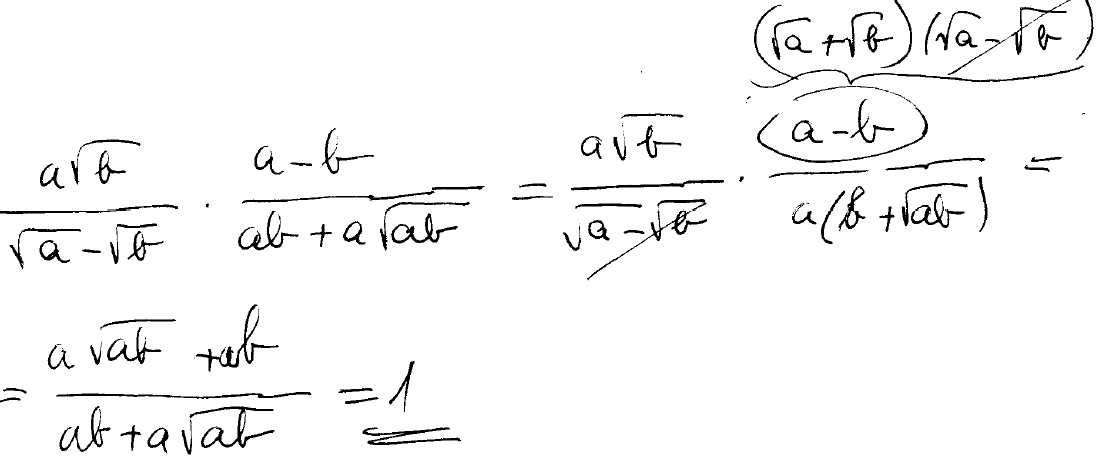 (√a + √b)(√a - √b)
a√b / (√a - √b) · (a - b) / (ab + a√ab) = a√b / (√a - √b) · (a - b) / (a(b + √ab)) =
= (a√ab + ab) / (ab + a√ab) = 1